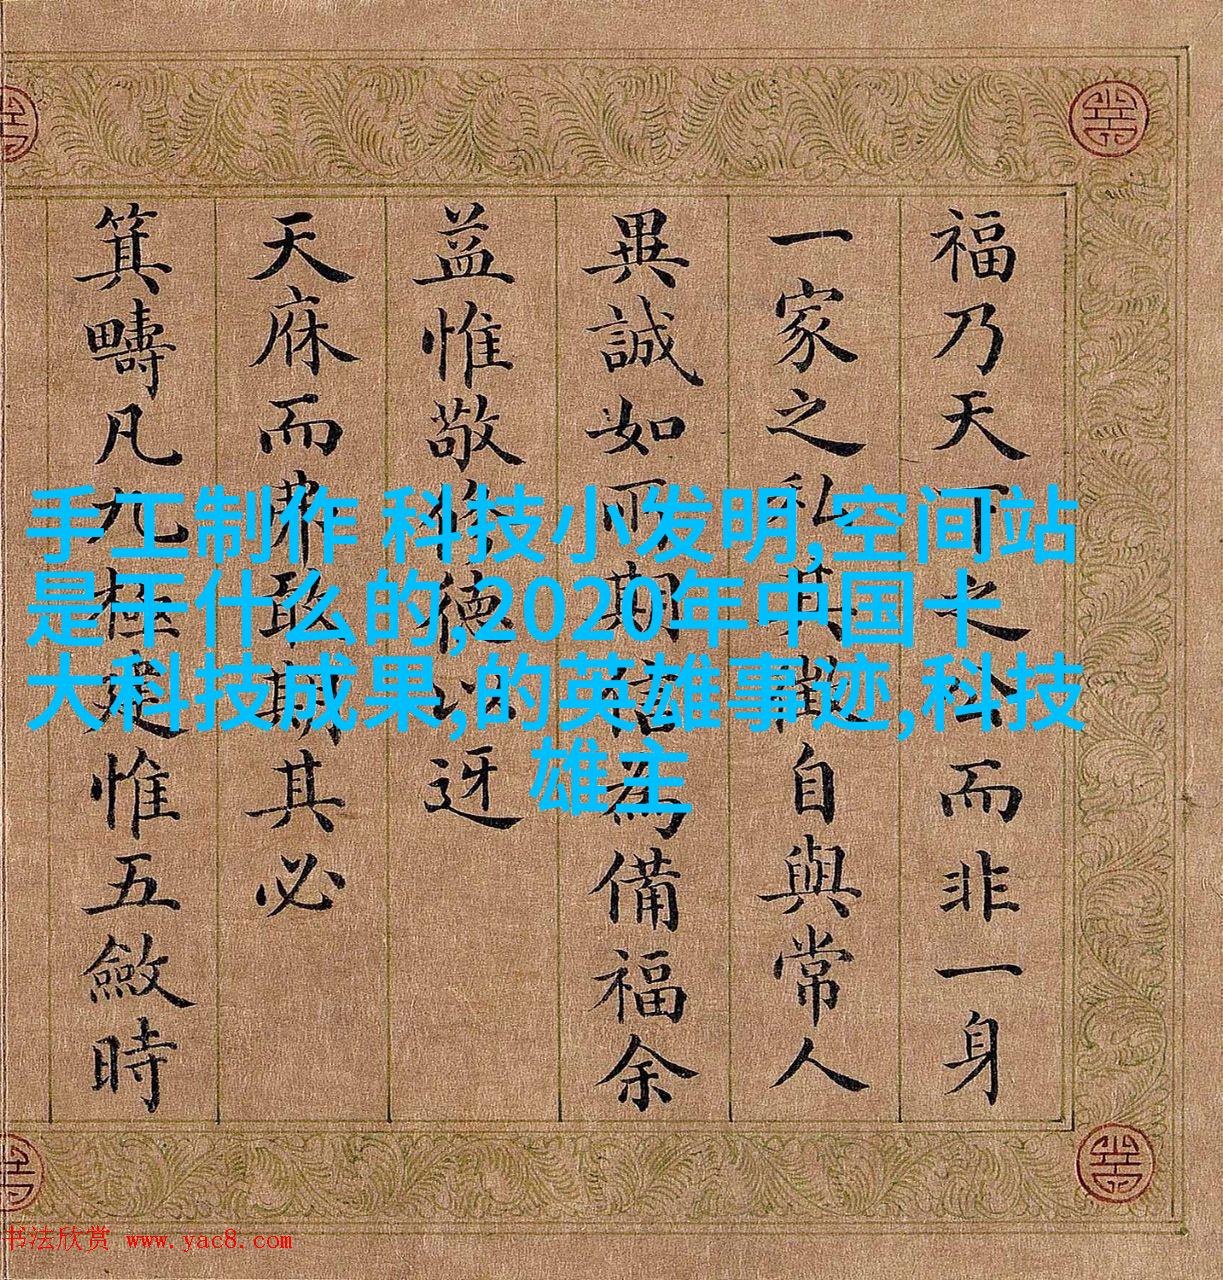 手工制作 科技小发明,空间站
是干什么的,2020年中国十
大科技成果,的英雄事迹,科技
雄主
福乃天下之公而非一身
一家之私其徵自與常人
異誠如所期信為備福余
益惟敬修德以迓
天庥而弗敢期其必
箕疇凡九極建惟五斂時
书法欣赏 www.yac8.com